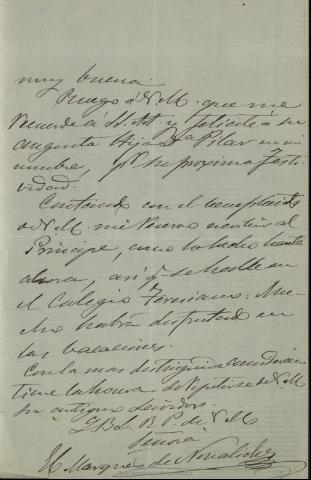 muy buena.
Ruego á V. M. que me
recuerde á SS. AA. y felicite á su
augusta Hija Dª Pilar en mi
nombre, pr su proxima festi-
vidad.
Contando con el beneplacito
de V. M. me reservo escribir al
Principe, como lo he hecho hasta
ahora, asi q. se halle en
el Colegio Teresiano. Mu-
cho habrá disfrutado en
las vacaciones.
Con la mas distinguida consideracion
tiene la honra de repetirse de V. M.
su antiguo servidor.
Q. B. L. R. P. de V. M.
Señora
El Marqués de Novaliches